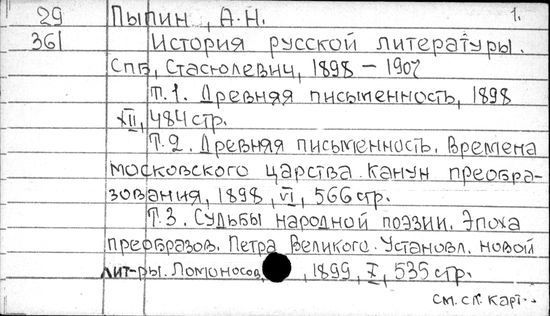 29 Пыпин, А.Н. 1.
361 История русской литературы.
СПБ, Стасюлевич, 1898 – 1907
Т.1. Древняя письменность, 1898
XII, 484 стр.
Т.2. Древняя письменность. Времена
московского царства. Канун преобра-
зования, 1898, VI, 566 стр.
Т.3. Судьбы народной поэзии. Эпоха
преобразов. Петра Великого. Установл. новой
лит-ры. Ломоносов, , 1899, X, 535 стр.
см. сл. карт.